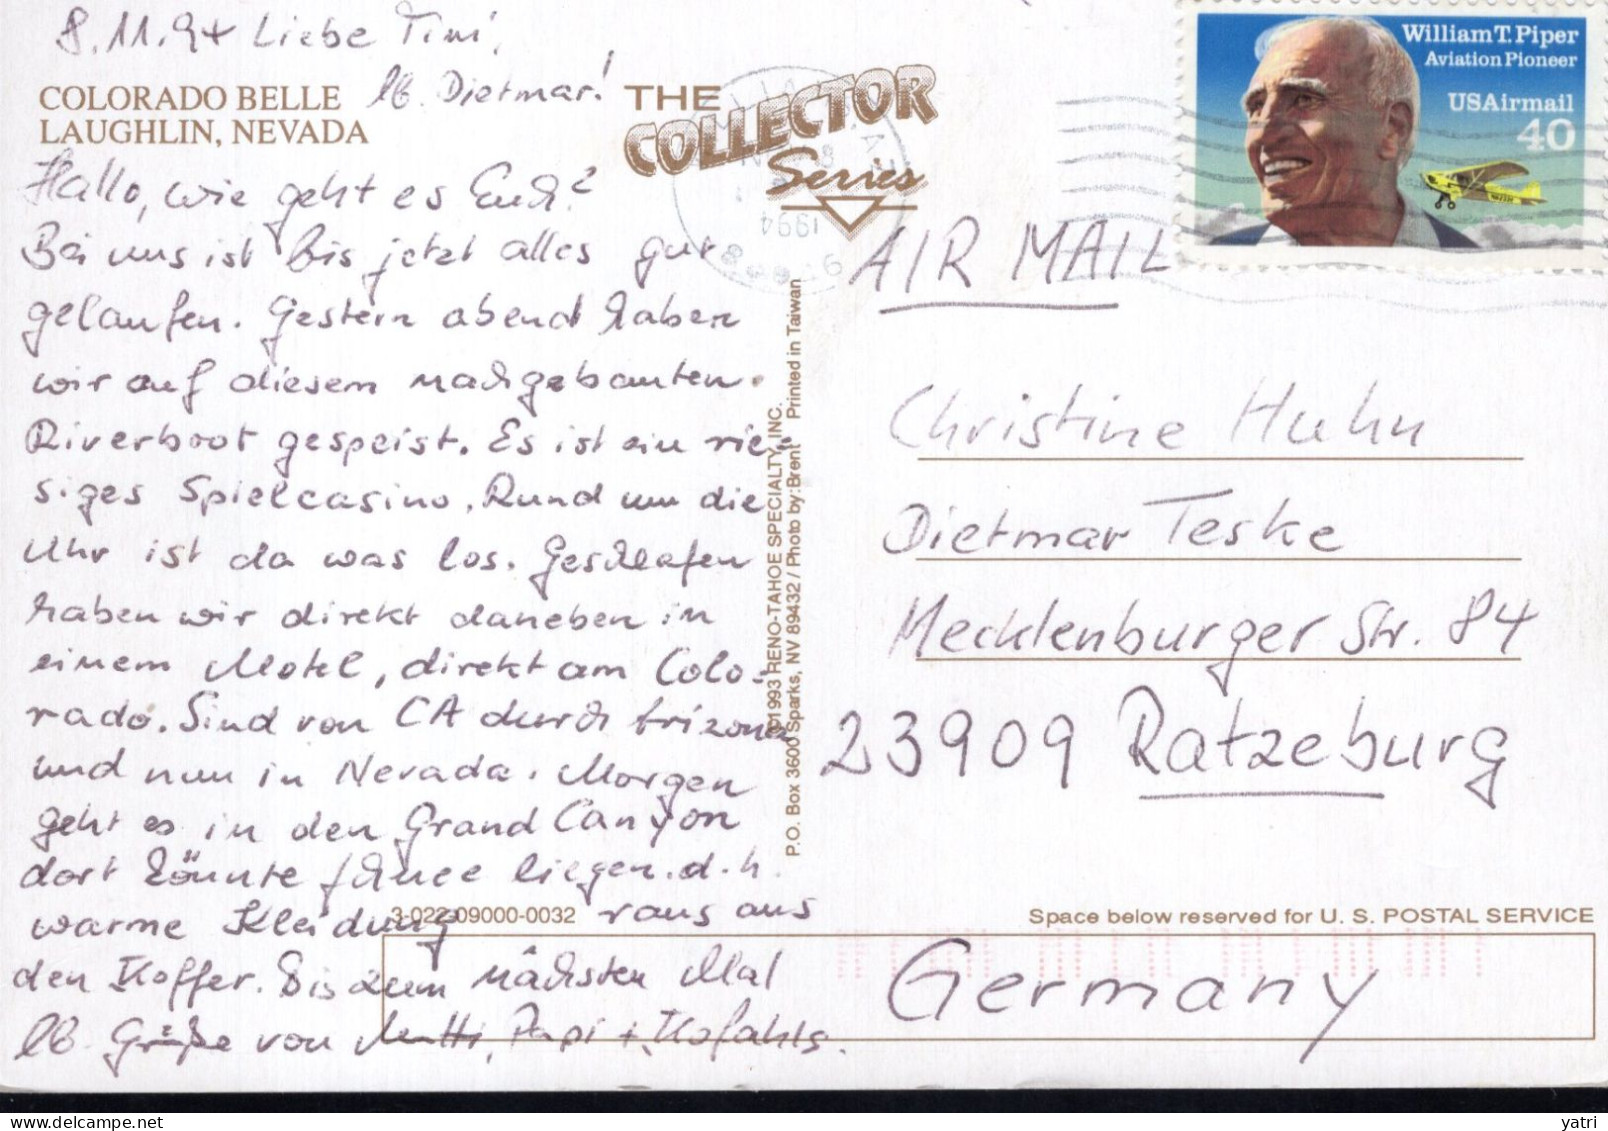 8.11.94 Liebe Timi,
lb. Dietmar!
COLORADO BELLE
LAUGHLIN, NEVADA
Hallo, wie geht es Euch?
Bei uns ist bis jetzt alles gut
gelaufen. Gestern abend haben
wir auf diesem nachgebauten
Riverboot gespeist. Es ist ein rie-
siges Spielcasino. Rund um die
Uhr ist da was los. Geschlafen
haben wir direkt daneben in
einem Motel, direkt am Colo-
rado. Sind von CA durch Arizona
und nun in Nevada. Morgen
geht es in den Grand Canyon
dort könnte Schnee liegen. d.h.
warme Kleidung raus aus
den Koffer. Bis zum nächsten Mal
lb. Grüße von Mutti, Papi + Kofahls.
3-022-09000-0032
THE
COLLECTOR
Series
©1993 RENO-TAHOE SPECIALTY, INC.
P.O. Box 3600 Sparks, NV 89432 / Photo by: Brent Printed in Taiwan
1994
William T. Piper
Aviation Pioneer
USAirmail
40
AIR MAIL
Christine Huhn
Dietmar Teske
Mecklenburger Str. 84
23909 Ratzeburg
Space below reserved for U. S. POSTAL SERVICE
Germany
yatri